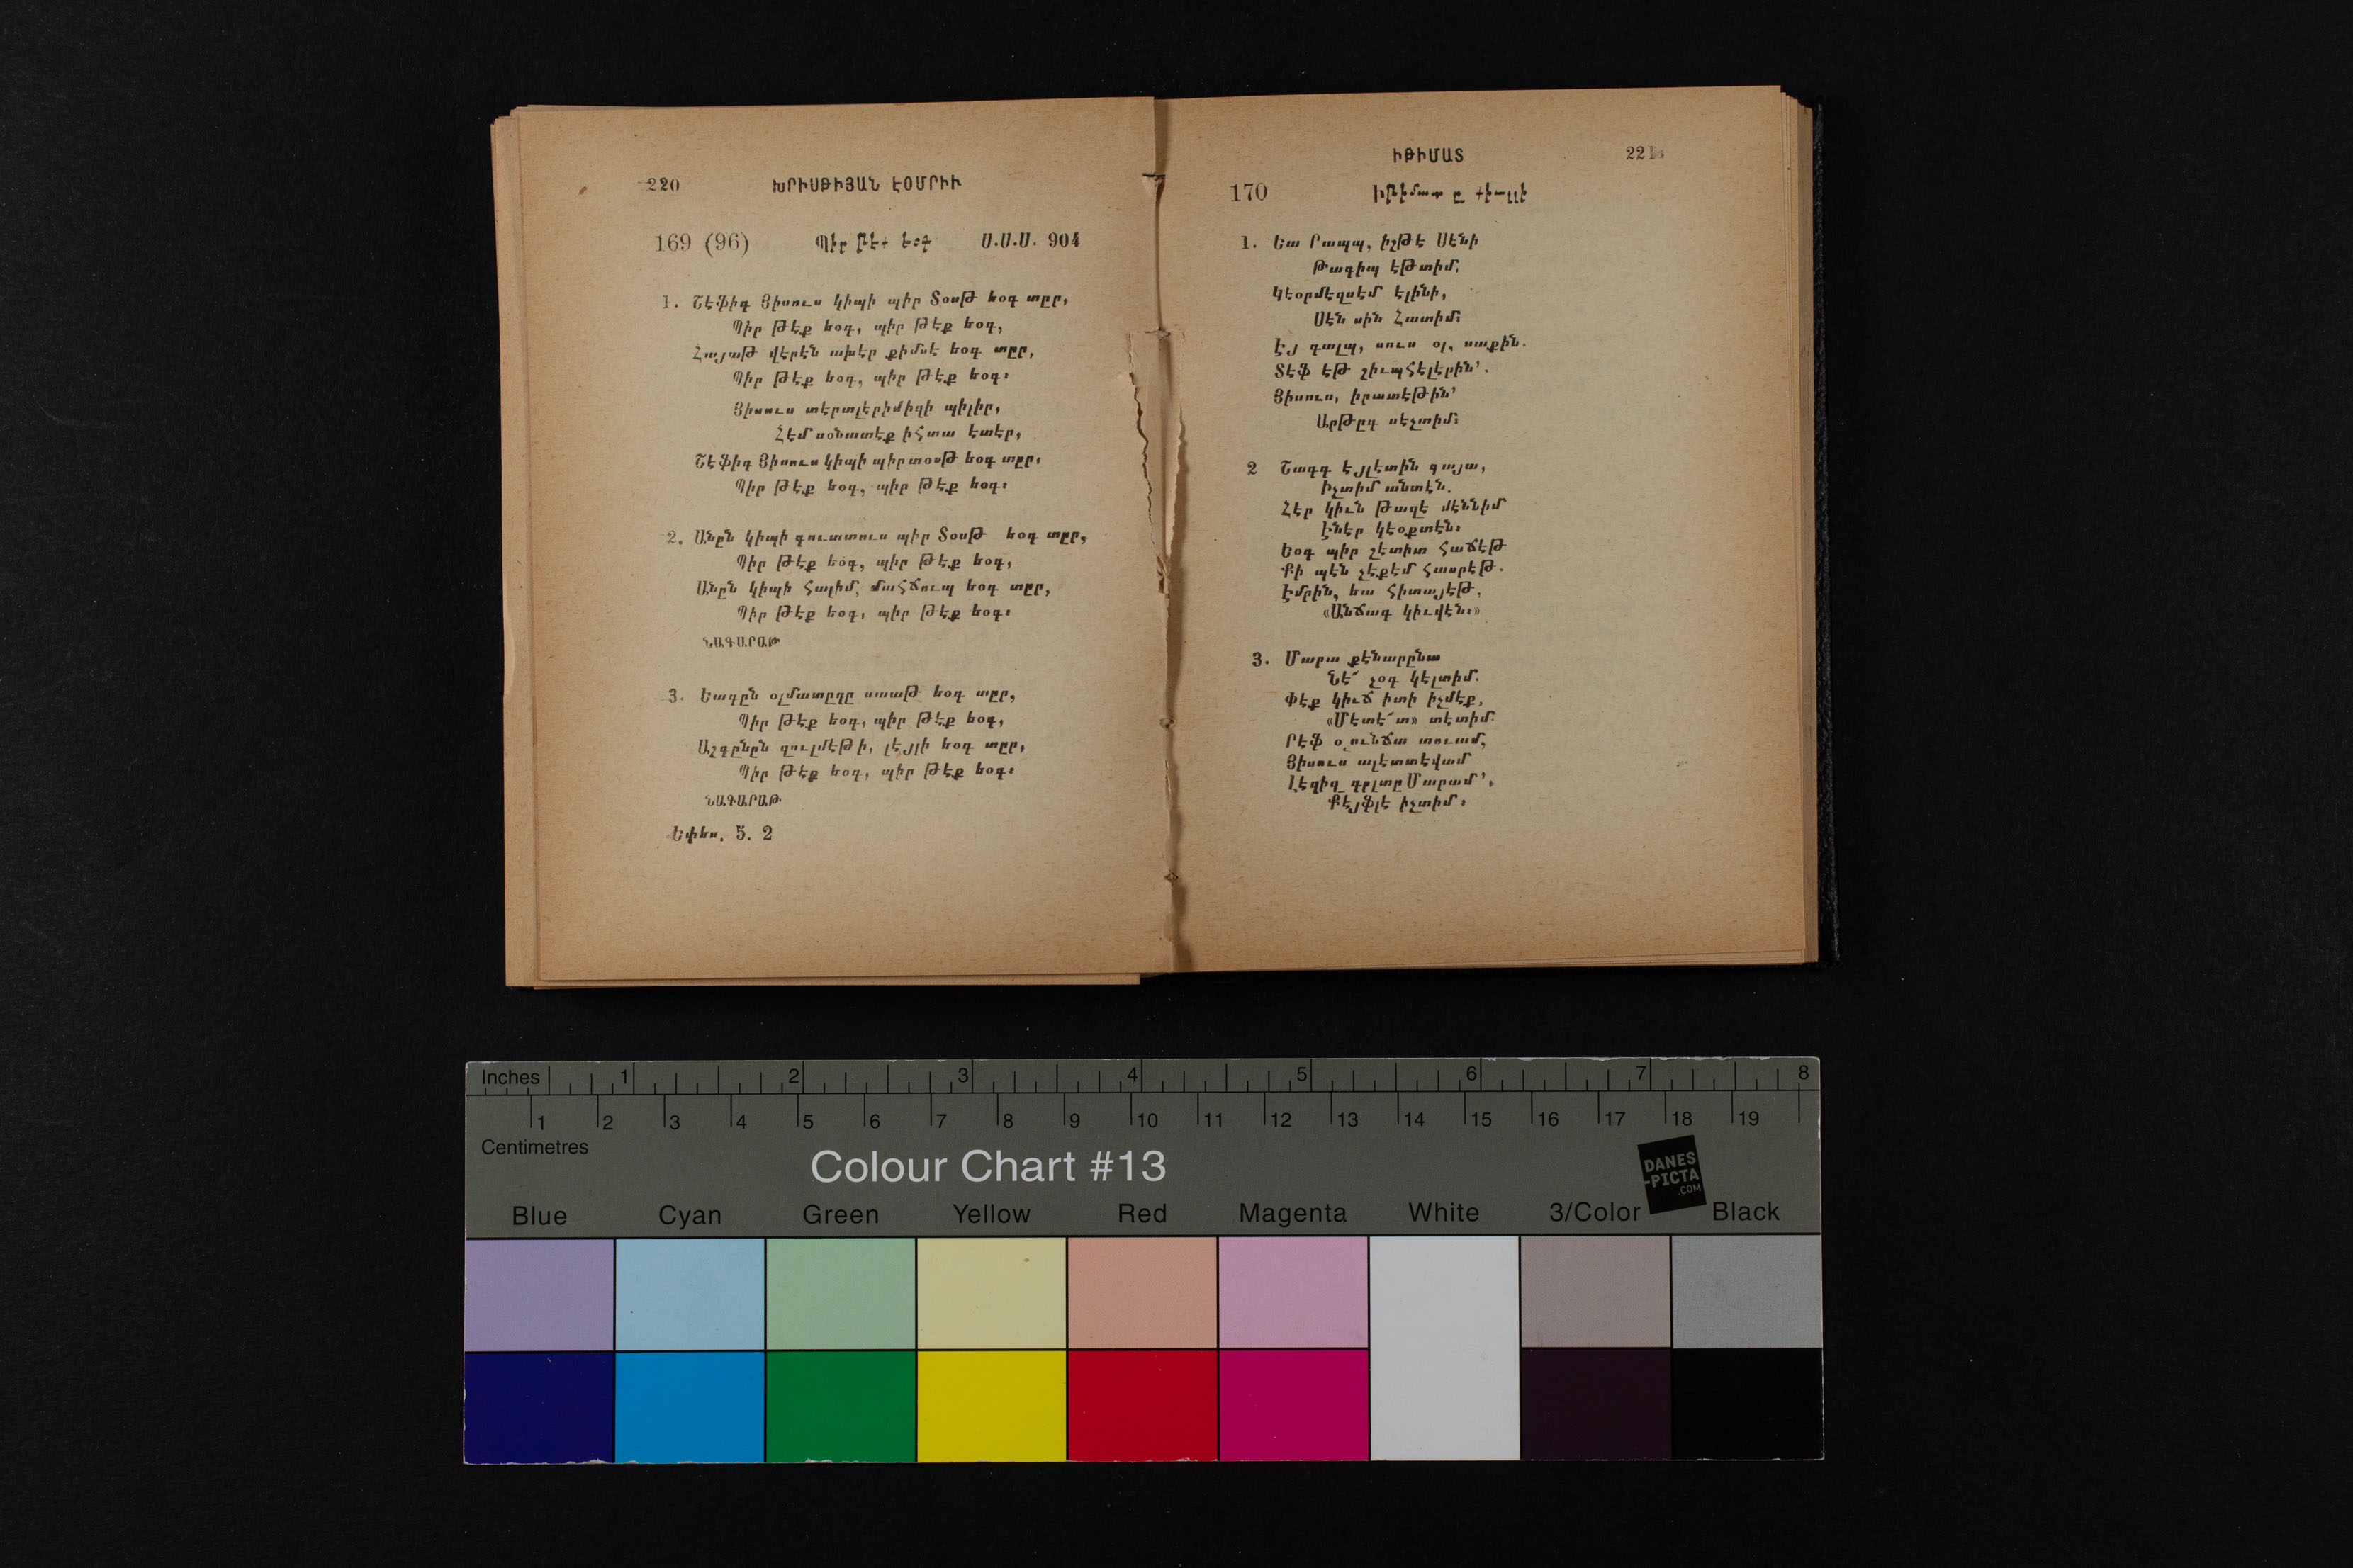 220 ԽՐԻՍԹԻՅԱՆ ԷՕՄՐԻՒ
169 (96) Պիր թէք եօգ Ս.Ս.Ս. 904
1. Շէֆիգ Յիսուս կիպի պիր Տօսթ եօգ տըր,
Պիր թէք եօգ, պիր թէք եօգ,
Հայաթ վէրէն ախէր քիմսէ եօգ տըր,
Պիր թէք եօգ, պիր թէք եօգ։
Յիսուս տէրտլէրիմիզի պիլիր,
Հէմ սօնատէք իհտա էտէր,
Շէֆիգ Յիսուս կիպի պիր տօսթ եօգ տըր,
Պիր թէք եօգ, պիր թէք եօգ։
2. Անըն կիպի գուտտուս պիր Տօսթ եօգ տըր,
Պիր թէք եօգ, պիր թէք եօգ,
Անըն կիպի հալիմ, մահճուպ եօգ տըր,
Պիր թէք եօգ, պիր թէք եօգ։
ՆԱԳԱՐԱԹ
3. Եագըն օլմատըղը սաաթ եօգ տըր,
Պիր թէք եօգ, պիր թէք եօգ,
Աշգընըն զուլմէթի, լէյլի եօգ տըր,
Պիր թէք եօգ, պիր թէք եօգ։
ՆԱԳԱՐԱԹ
Եփես. 5. 2
ԻԹԻՄԱՏ 221
170
1. Եա Րապպ, իշթէ Սէնի
Թագիպ էթտիմ,
Կէօրմէզսէմ էլինի,
Սէն սին Հատիմ։
Էյ գալպ, սուս օլ, սաքին.
Տէֆ էթ շիւպհէլէրին՚.
Յիսուս, իրատէթին՚
Արթըգ սէչտիմ։
2 Շագգ էյլէտին գայա,
Իչտիմ անտէն.
Հէր կիւն թազէ մէննիմ
Էնէր կէօքտէն։
Եօգ պիր շէտիտ հաճէթ
Քի պէն չէքէմ հասրէթ.
Էմրին, եա հիտայէթ,
«Անճագ կիւվէն։»
3. Մարա քէնարընա
Նէ՜ չօգ կէլտիմ.
Փէք կիւճ իտի իչմէք,
«Մէտէ՜տ» տէտիմ.
Րէֆ օլունճա տուամ,
Յիսուս ալէտտէվամ
Լէզիզ գըլտը Մարամ՚,
Քէյֆլէ իչտիմ։
Inches 1 2 3 4 5 6 7 8
1 2 3 4 5 6 7 8 9 10 11 12 13 14 15 16 17 18 19
Centimetres
Colour Chart #13
DANES
-PICTA
.COM
Blue Cyan Green Yellow Red Magenta White 3/Color Black